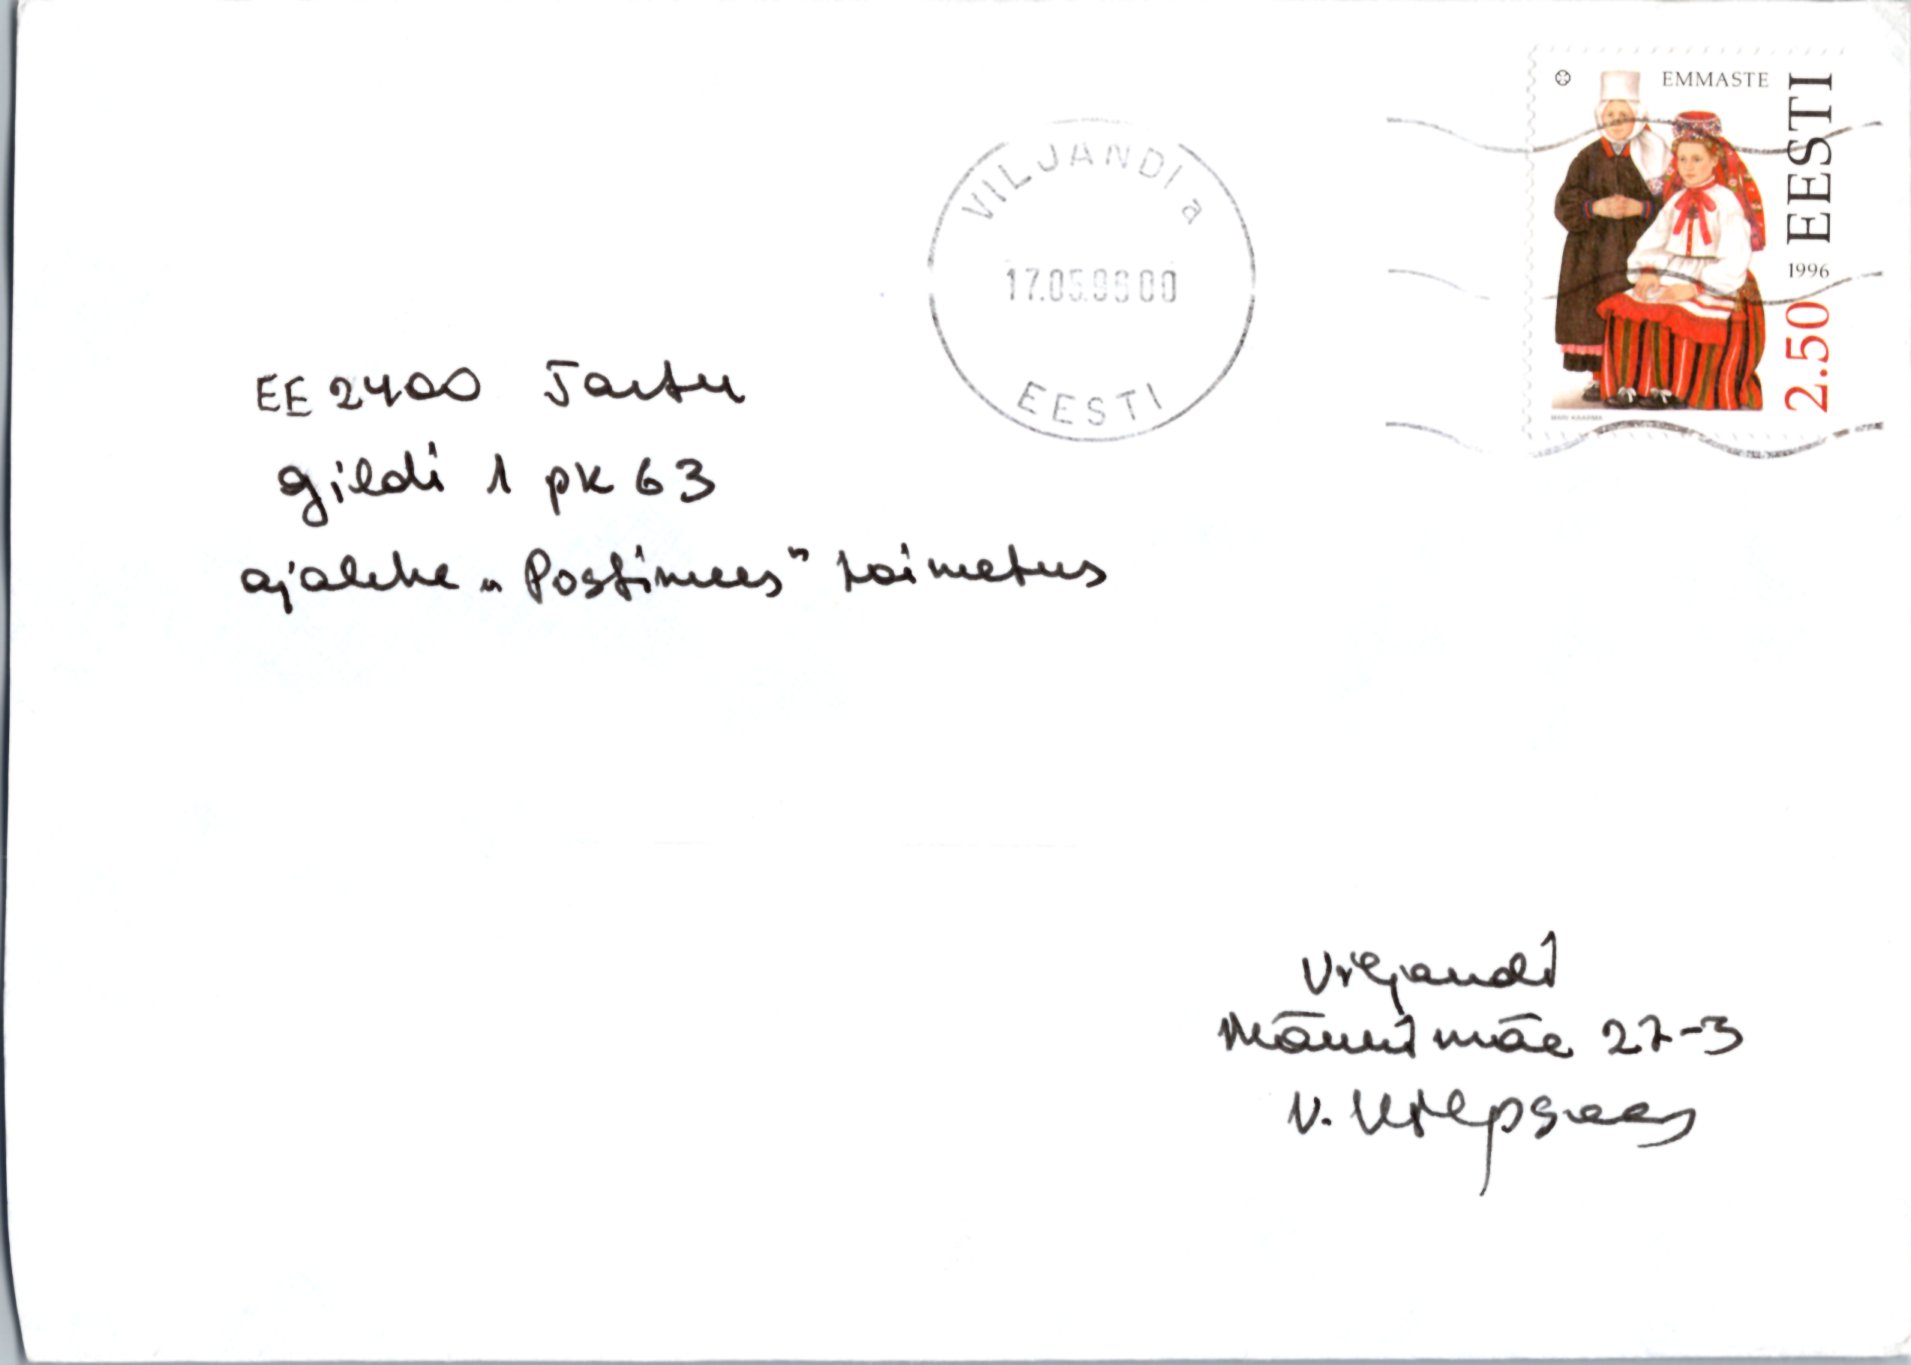 EMMASTE
EESTI
1996
2.50
MARI KAARMA
VILJANDI a
17.05.96 00
EESTI
EE 2400 Tartu
Gildi 1 pk 63
ajalehe „Postimees” toimetus
Viljandi
Männimäe 27-3
V.